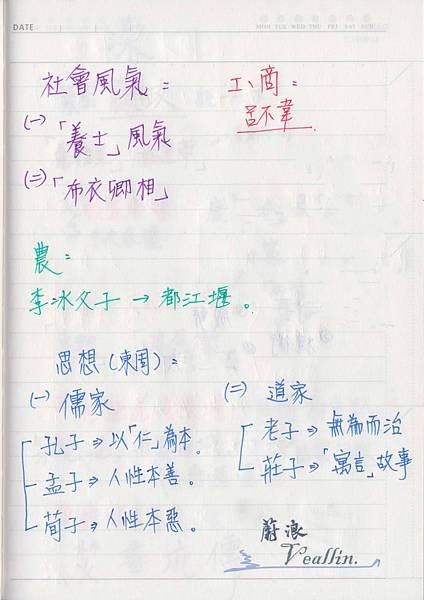 DATE
MON TUE WED THU FRI SAT SUN
社會風氣:
(一)「養士」風氣
(二)「布衣卿相」
工、商:
呂不韋
農:
李冰父子→都江堰。
思想(東周):
(一)儒家
孔子⇒以「仁」為本。
孟子⇒人性本善。
荀子⇒人性本惡。
(二)道家
老子⇒無為而治
莊子⇒「寓言」故事
蔚浪
Veallin.